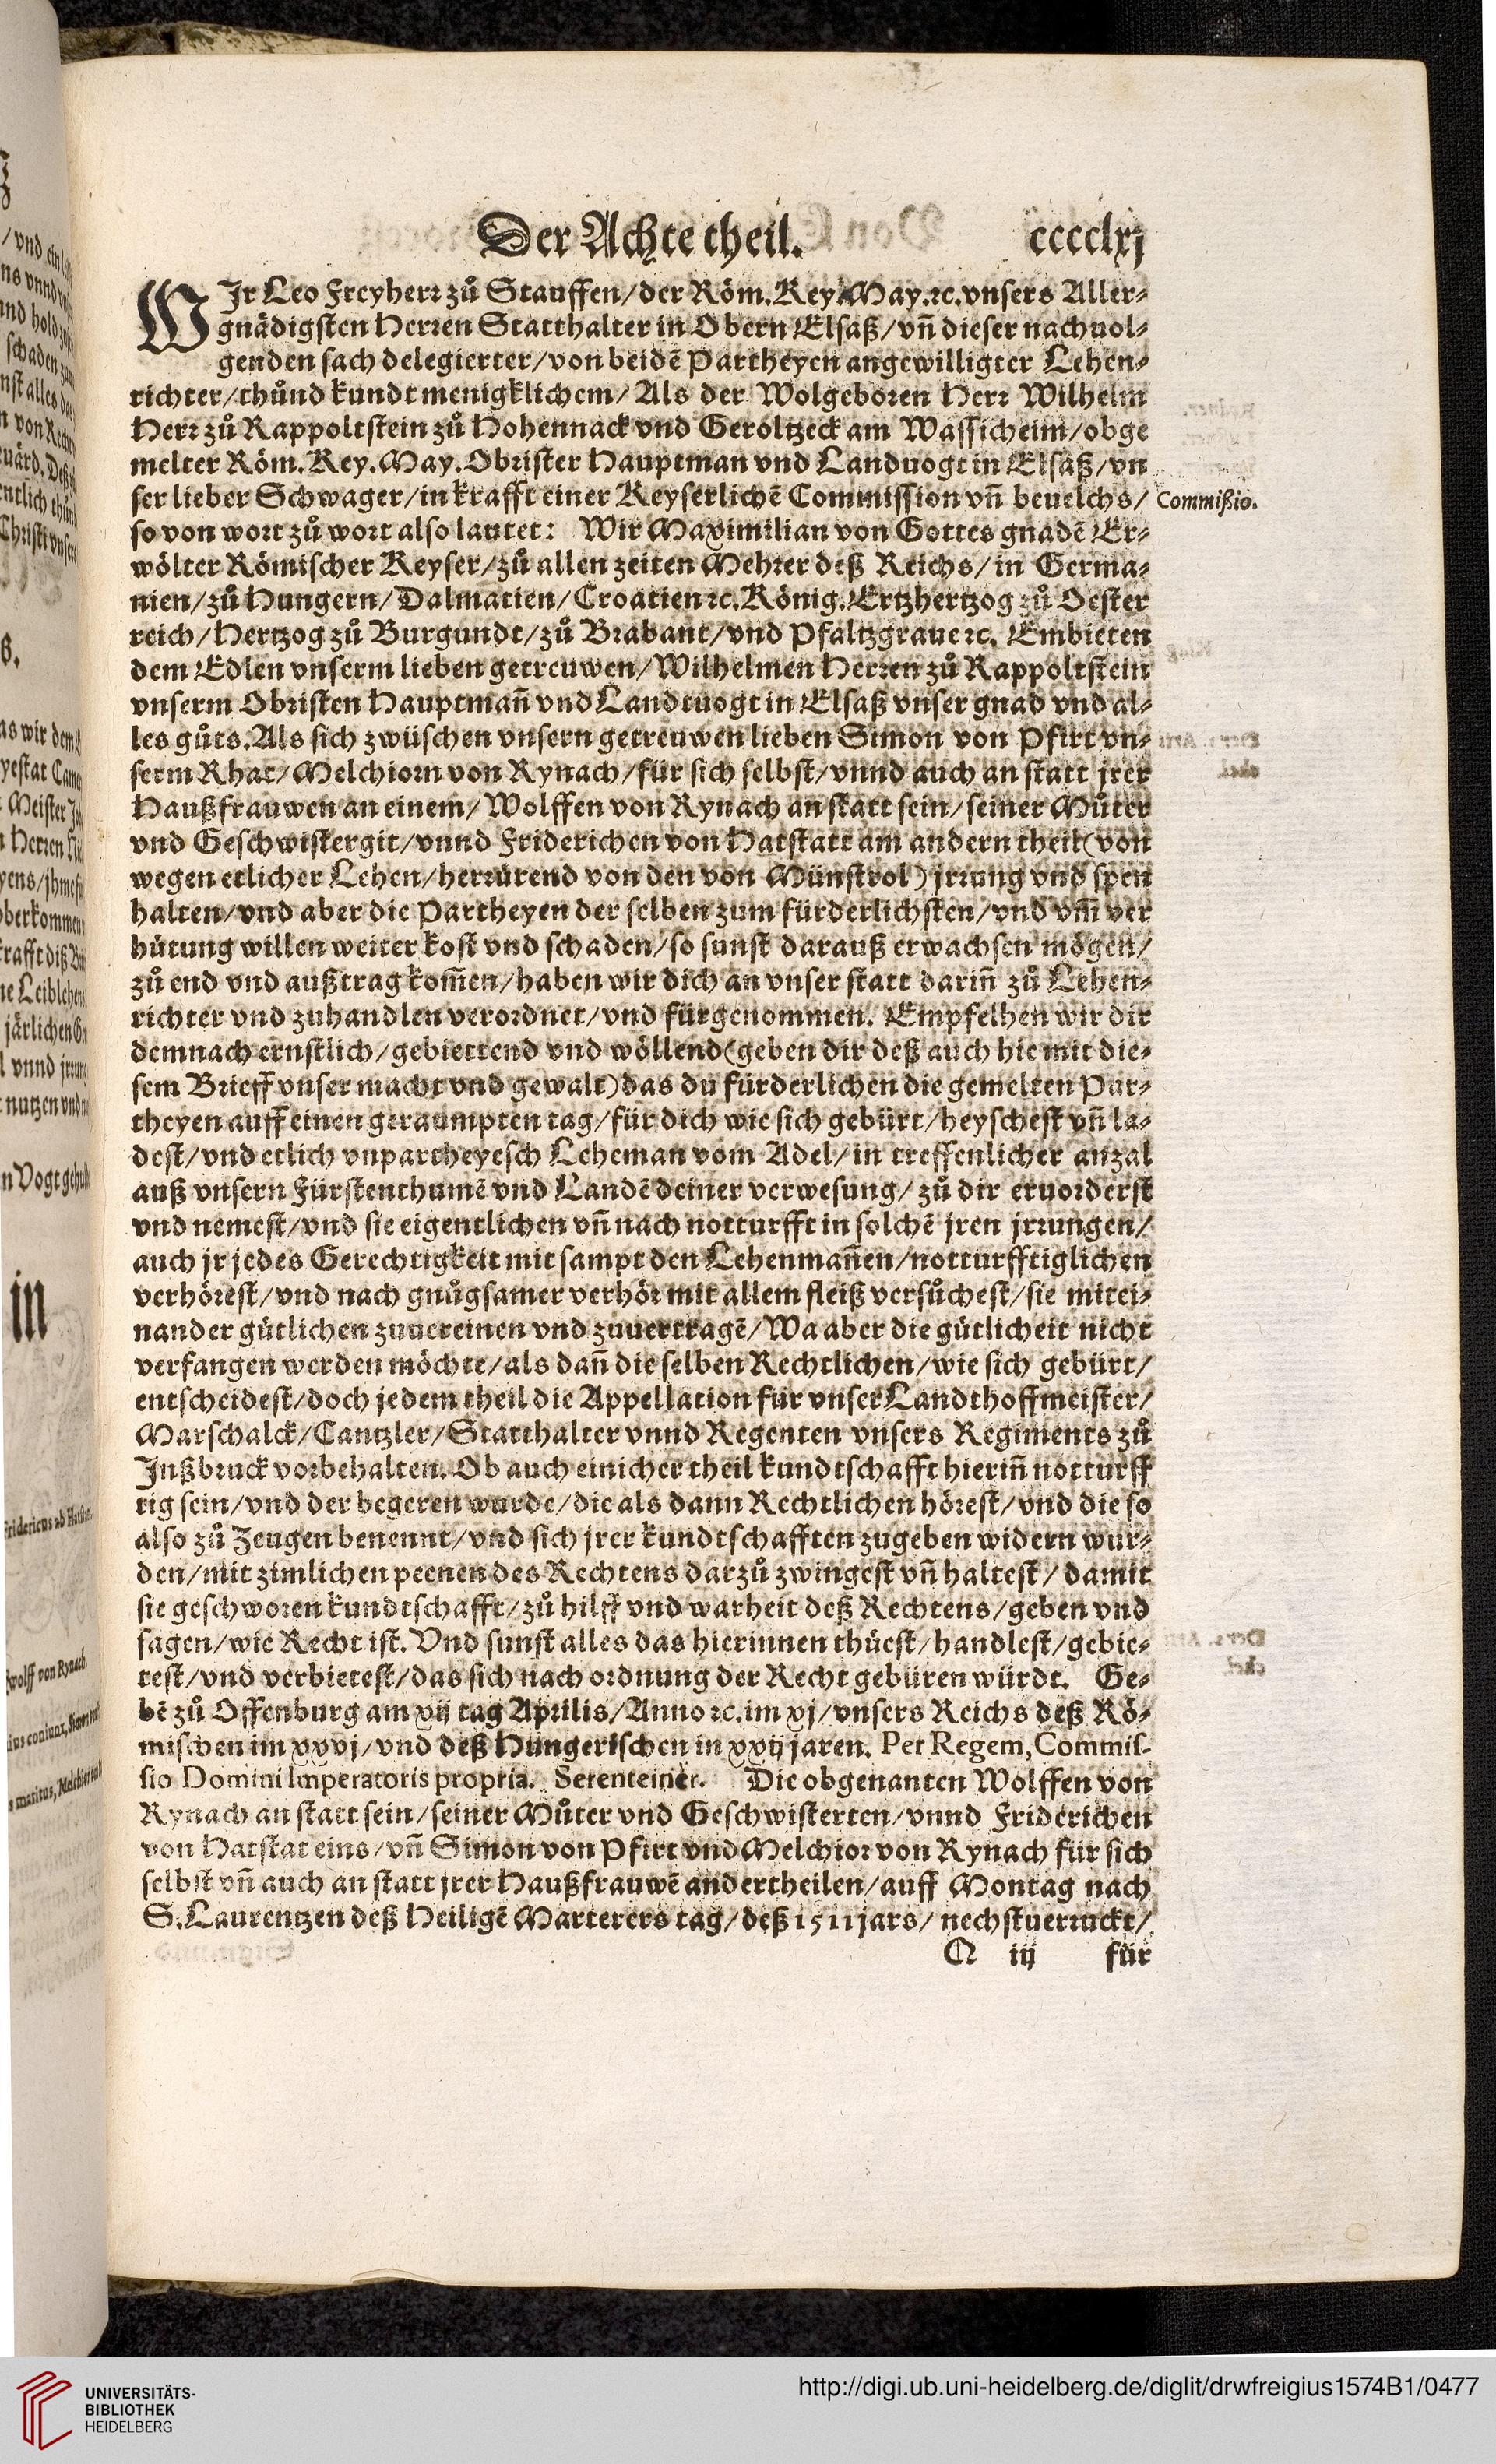 Der Achte theil. cccclxj
WIr Leo Freyherr zů Stauffen/der Röm. Key. May. ꝛc. vnsers Aller⸗
gnädigsten Herren Statthalter in Obern Elsaß/vn̄ dieser nachuol⸗
genden sach delegierter/von beidē Partheyen angewilligter Lehen⸗
richter/thůnd kundt menigklichem/Als der Wolgeboren Herr Wilhelm
Herr zů Rappoltstein zů Hohennack vnd Geroltzeck am Wassicheim/obge
melter Röm. Key. May. Obrister Hauptman vnd Landuogt in Elsaß/vn
ser lieber Schwager/in krafft einer Keyserlichē Commission vn̄ beuelchs/
Commißio.
so von wort zů wort also lautet: Wir Maximilian von Gottes gnadē Er⸗
wölter Römischer Keyser/zů allen zeiten Mehrer deß Reichs/in Germa⸗
nien/zů Hungern/Dalmatien/Croatien ꝛc. König. Ertzhertzog zů Oester
reich/Hertzog zů Burgundt/zů Brabant/vnd Pfaltzgraue ꝛc. Embieten
dem Edlen vnserm lieben getreuwen/Wilhelmen Herren zů Rappoltstein
vnserm Obristen Hauptman̄ vnd Landtuogt in Elsaß vnser gnad vnd al⸗
les gůts. Als sich zwüschen vnsern getreuwen lieben Simon von Pfirt vn⸗
serm Rhat/Melchiorn von Rynach/für sich selbst/vnnd auch an statt jrer
Haußfrauwen an einem/Wolffen von Rynach an statt sein/seiner Můter
vnd Geschwistergit/vnnd Friderichen von Hatstatt am andern theil (von
wegen etlicher Lehen/herrürend von den von Münstrol) jrrung vnd spen
halten/vnd aber die Partheyen der selben zum fürderlichsten/vnd vm̄ ver
hütung willen weiter kost vnd schaden/so sunst darauß erwachsen mögen/
zů end vnd außtrag kom̄en/haben wir dich an vnser statt darin̄ zů Lehen⸗
richter vnd zuhandlen verordnet/vnd fürgenommen. Empfelhen wir dir
demnach ernstlich/gebiettend vnd wöllend (geben dir deß auch hie mit die⸗
sem Brieff vnser macht vnd gewalt) das du fürderlichen die gemelten Par⸗
theyen auff einen geraumpten tag/für dich wie sich gebürt/heyschest vn̄ la⸗
dest/vnd etlich vnpartheyesch Leheman vom Adel/in treffenlicher anzal
auß vnsern Fürstenthumē vnd Landē deiner verwesung/zů dir eruorderst
vnd nemest/vnd sie eigentlichen vn̄ nach notturfft in solchē jren jrrungen/
auch jr jedes Gerechtigkeit mit sampt den Lehenman̄en/notturfftiglichen
verhörest/vnd nach gnůgsamer verhör mit allem fleiß versůchest/sie mitei⸗
nander gütlichen zuuereinen vnd zuuertragē/Wa aber die gütlicheit nicht
verfangen werden möchte/als dan̄ die selben Rechtlichen/wie sich gebürt/
entscheidest/doch jedem theil die Appellation für vnser Landthoffmeister/
Marschalck/Cantzler/Statthalter vnnd Regenten vnsers Regiments zů
Jnßbruck vorbehalten. Ob auch einicher theil kundtschafft hierin̄ notturff
tig sein/vnd der begeren wurde/die als dann Rechtlichen hörest/vnd die so
also zů Zeugen benennt/vnd sich jrer kundtschafften zugeben widern wur⸗
den/mit zimlichen peenen des Rechtens darzů zwingest vn̄ haltest/damit
sie geschworen kundtschafft/zů hilff vnd warheit deß Rechtens/geben vnd
sagen/wie Recht ist. Vnd sunst alles das hierinnen thüest/handlest/gebie⸗
test/vnd verbietest/das sich nach ordnung der Recht gebüren würdt. Ge⸗
bē zů Offenburg am xij tag Aprilis/Anno ꝛc. im xj/vnsers Reichs deß Rö⸗
mischen im xxvj/vnd deß Hungerischen in xxij jaren. Per Regem, Commis-
sio Domini Imperatoris propria. Serenteiner. Die obgenanten Wolffen von
Rynach an statt sein/seiner Můter vnd Geschwisterten/vnnd Friderichen
von Hatstat eins/vn̄ Simon von Pfirt vnd Melchior von Rynach für sich
selbst vn̄ auch an statt jrer Haußfrauwē andertheilen/auff Montag nach
S. Laurentzen deß Heiligē Marterers tag/deß 1511 jars/nechstuerruckt/
Q iij für
UNIVERSITÄTS-
BIBLIOTHEK
HEIDELBERG
http://digi.ub.uni-heidelberg.de/diglit/drwfreigius1574B1/0477